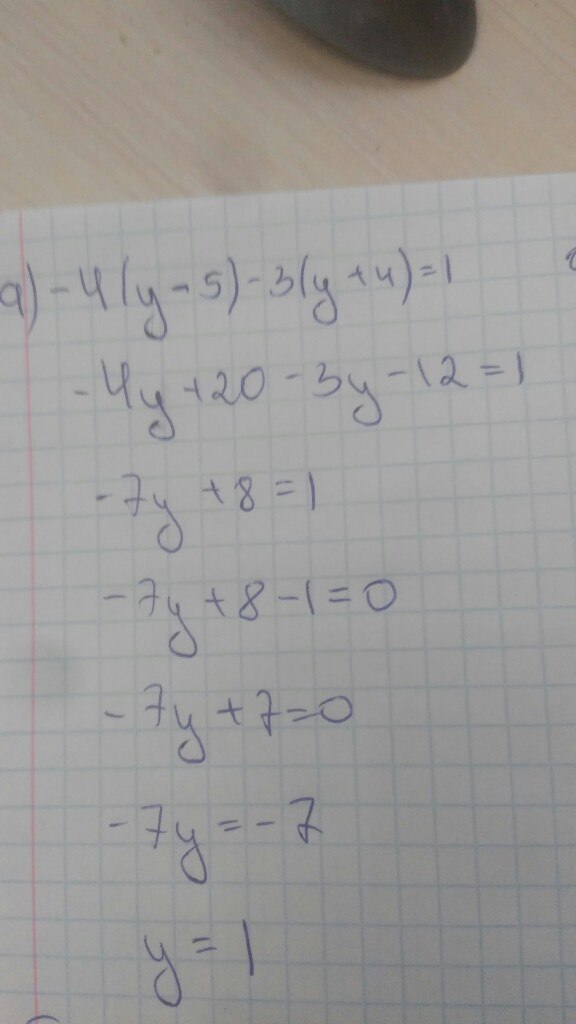 а) -4(y-5)-3(y+4)=1
-4y+20-3y-12=1
-7y+8=1
-7y+8-1=0
-7y+7=0
-7y=-7
y=1